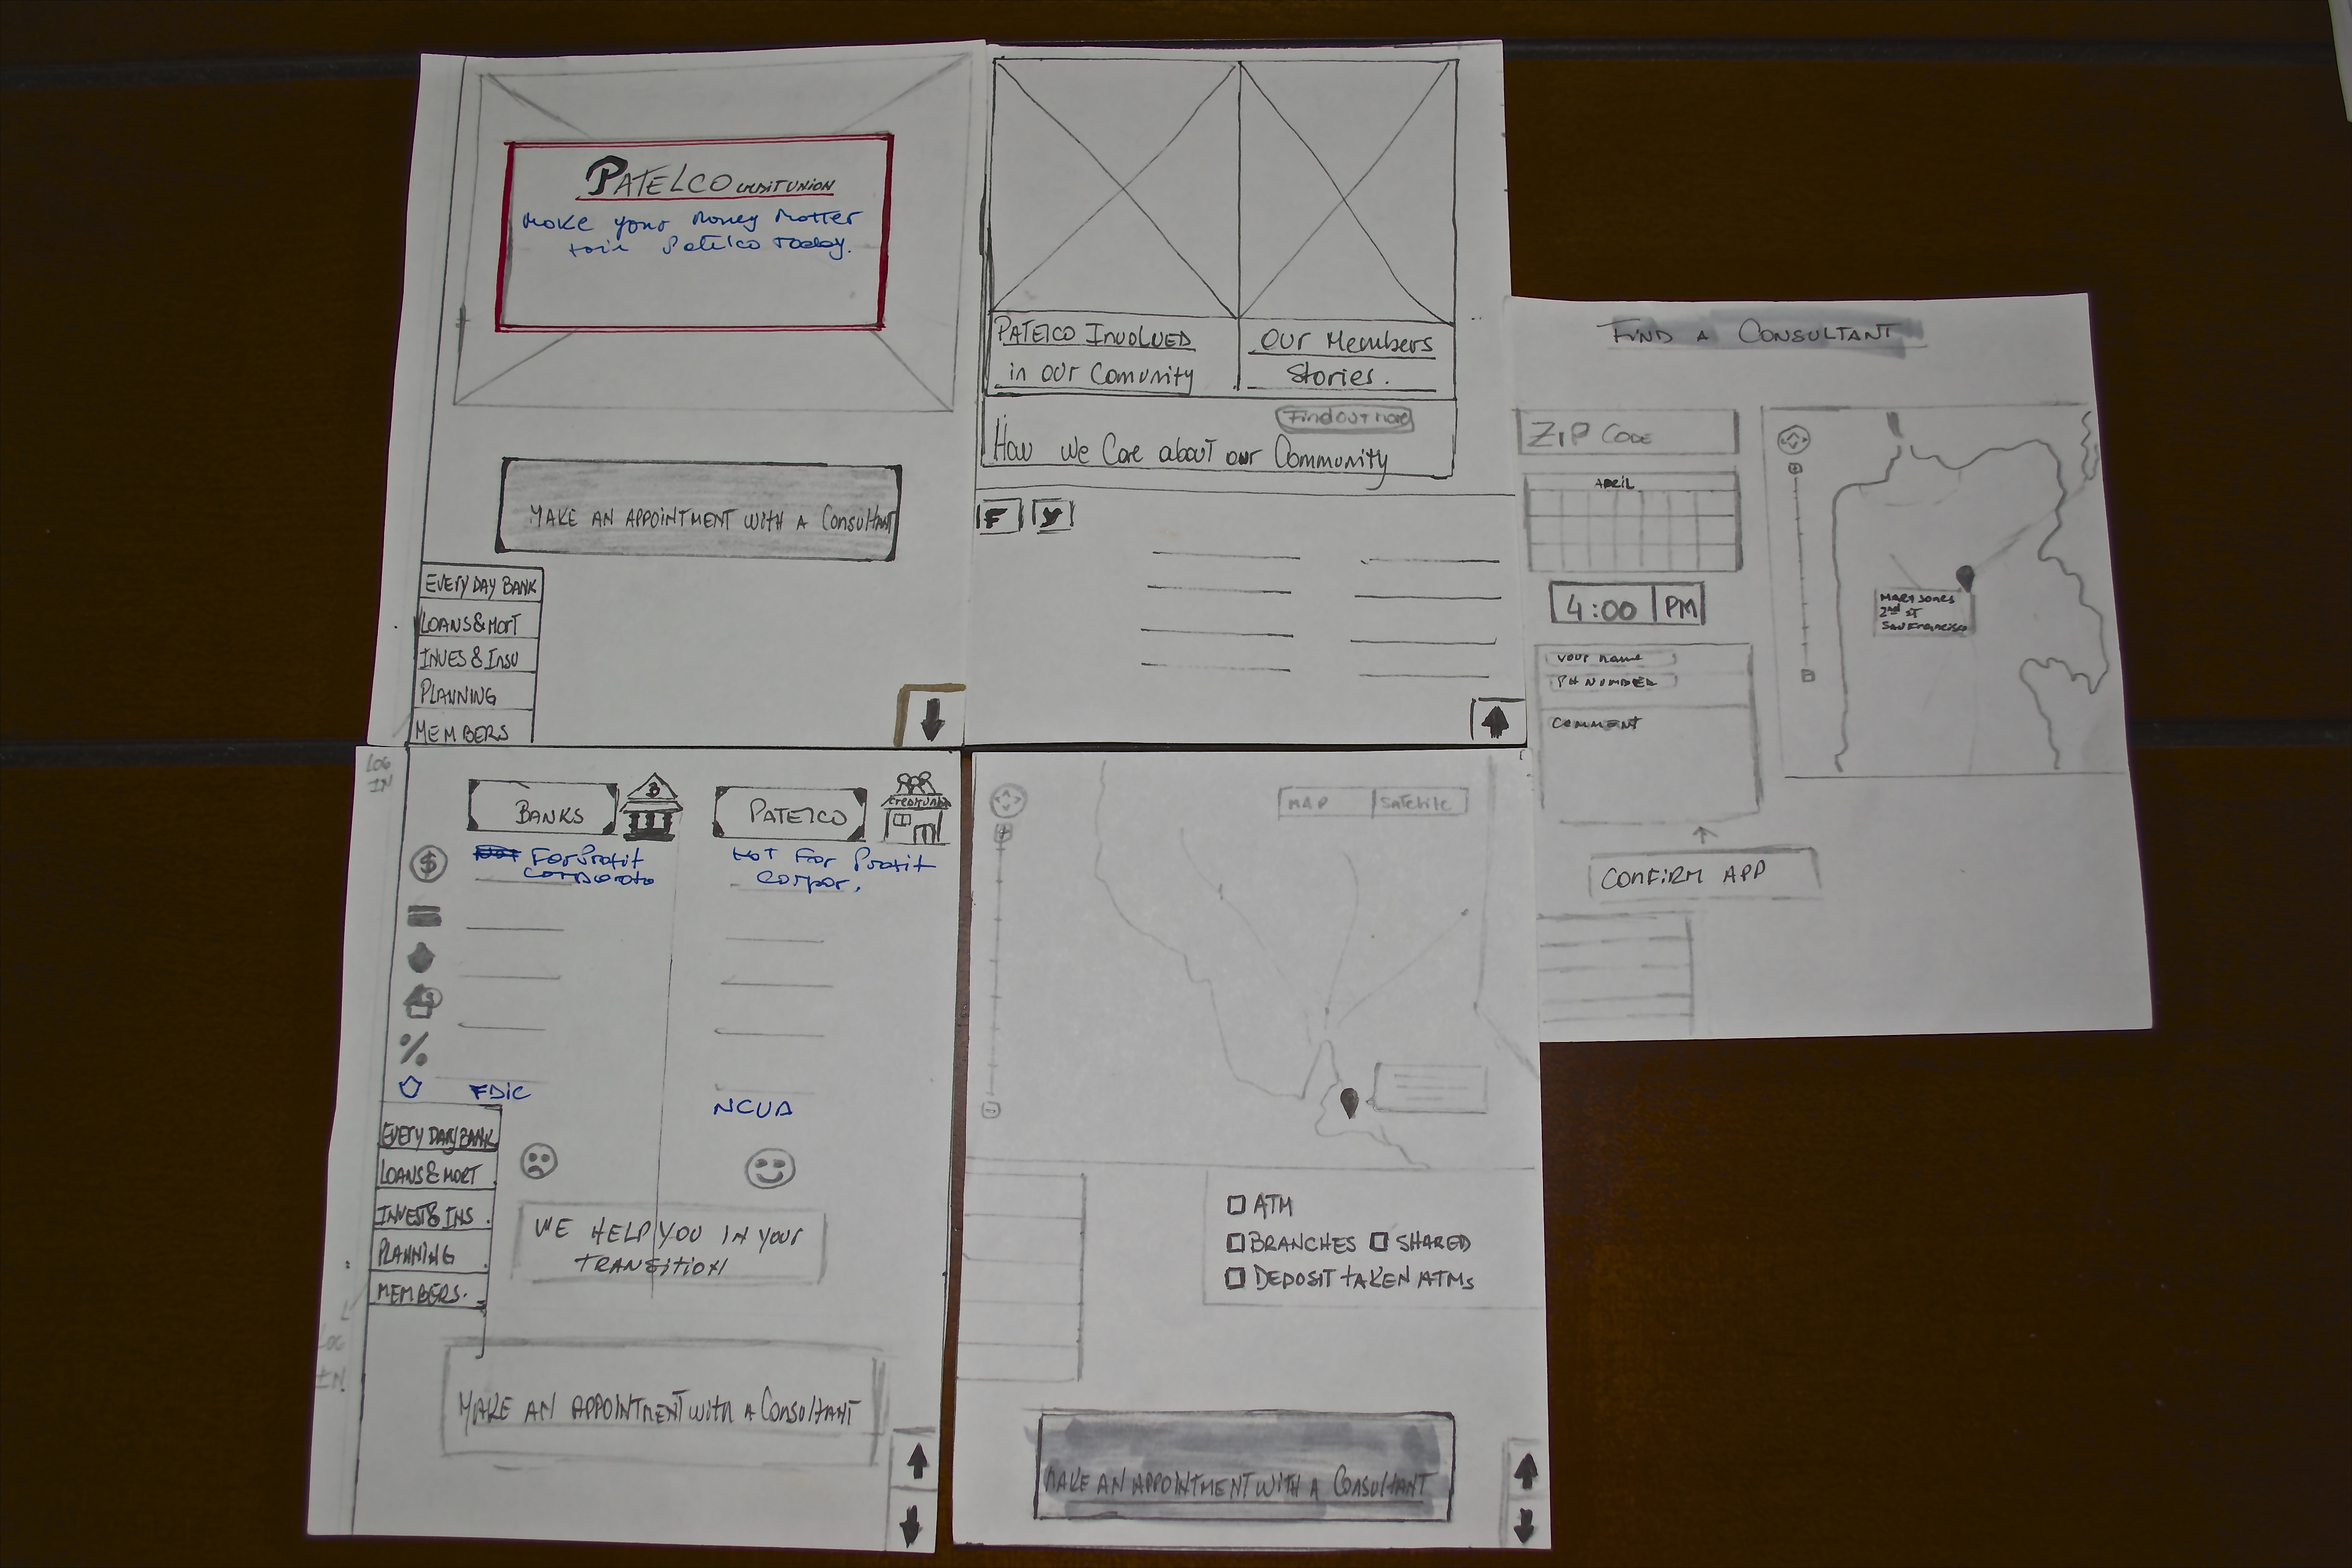 PATELCO CREDIT UNION
Make your Money Matter
Join Patelco Today.
MAKE AN APPOINTMENT WITH A Consultant
EVERY DAY BANK
LOANS & MORT
INVES & INSU
PLANNING
MEMBERS
PATELCO INVOLVED
in our Comunity
Our Members
Stories.
Find out more
How we Care about our Community
F
y
FIND A CONSULTANT
ZIP CODE
APRIL
4:00 PM
YOUR NAME
PH NUMBER
COMMENT
MARY JONES
2nd ST
SAN FRANCISCO
CONFIRM APP
LOG
IN
BANKS
B
PATELCO
CREDIT UNION
$
For Profit
Corporate
NOT For Profit
Corpor.
$
%
FDIC
NCUA
EVERY DAY BANK
LOANS & MORT
INVEST & INS.
PLANNING
MEMBERS.
LOG
IN
WE HELP YOU IN YOUR
TRANSITION
MAKE AN APPOINTMENT with a Consultant
MAP
Satelite
ATM
BRANCHES SHARED
DEPOSIT TAKEN ATMs
MAKE AN APPOINTMENT WITH A Consultant